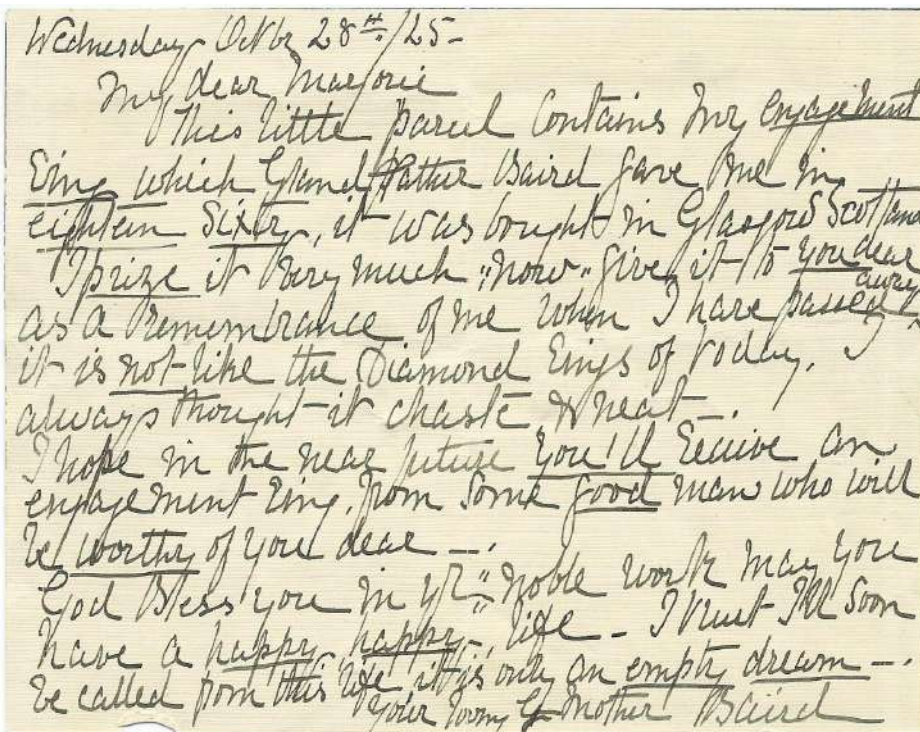 Wednesday Octbr 28th/25-
My dear Marjorie
This little parcel contains my engagement
Ring which Grand father Baird gave me in
eighteen sixty, it was bought in Glasgow Scotland
I prize it very much "now" give it to you dear
as a remembrance of me when I have passed away
it is not like the Diamond Rings of today. I
always thought it chaste & neat -.
I hope in the near future you'll receive an
engagement ring, from some good man who will
be worthy of you dear -.
God Bless you in yr "noble work may you
have a happy, happy, life - I trust I'll soon
be called from this life, it is only an empty dream -.
Your loving Gd Mother Baird